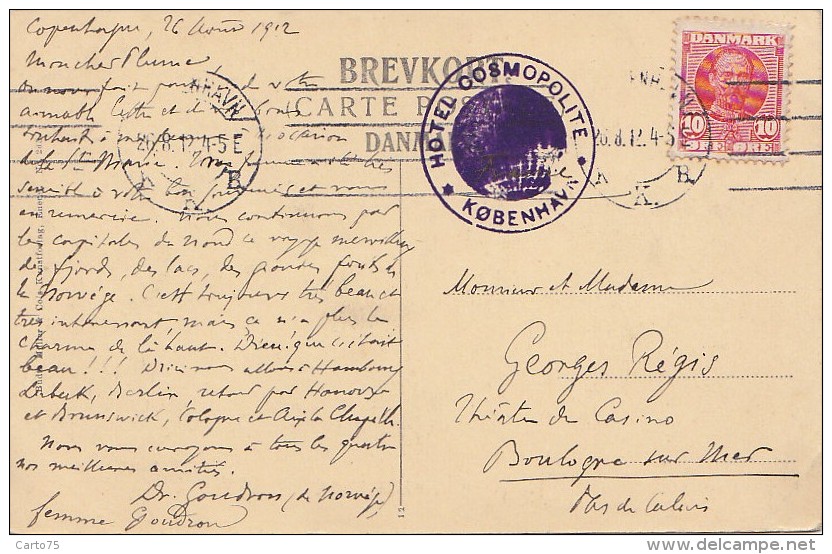 Copenhague, 26 Août 1912
Mon cher Plume
BREVKORT
CARTE POS
DANM
HOTEL COSMOPOLITE
KØBENHAVN
DANMARK
10 10
ØRE ØRE
ENHAVN
26.8.12.4-5 E
K. B.
26.8.12.4-5
K. B.
aimable lettre et
occasion
Ste Marie.
sensible à votre bon souvenir et vous
en remercie. Nous continuons par
les capitales du Nord ce voyage merveilleux
de fjords, des lacs, des grandes forêts de
la Norvège. C'est toujours très beau et
très intéressant, mais ce n'a plus le
charme de là haut. Dieu ! que c'était
beau !!! D'ici nous allons à Hambourg
Lubeck, Berlin, retour par Hanovre
et Brunswick, Cologne et Aix la Chapelle.
Nous vous envoyons à tous les quatre
nos meilleures amitiés.
Dr. Goudron (de Norvège)
femme Goudron
Monsieur et Madame
Georges Régis
Théâtre du Casino
Boulogne sur Mer
Pas de Calais
12
Carto75
delcampe.net